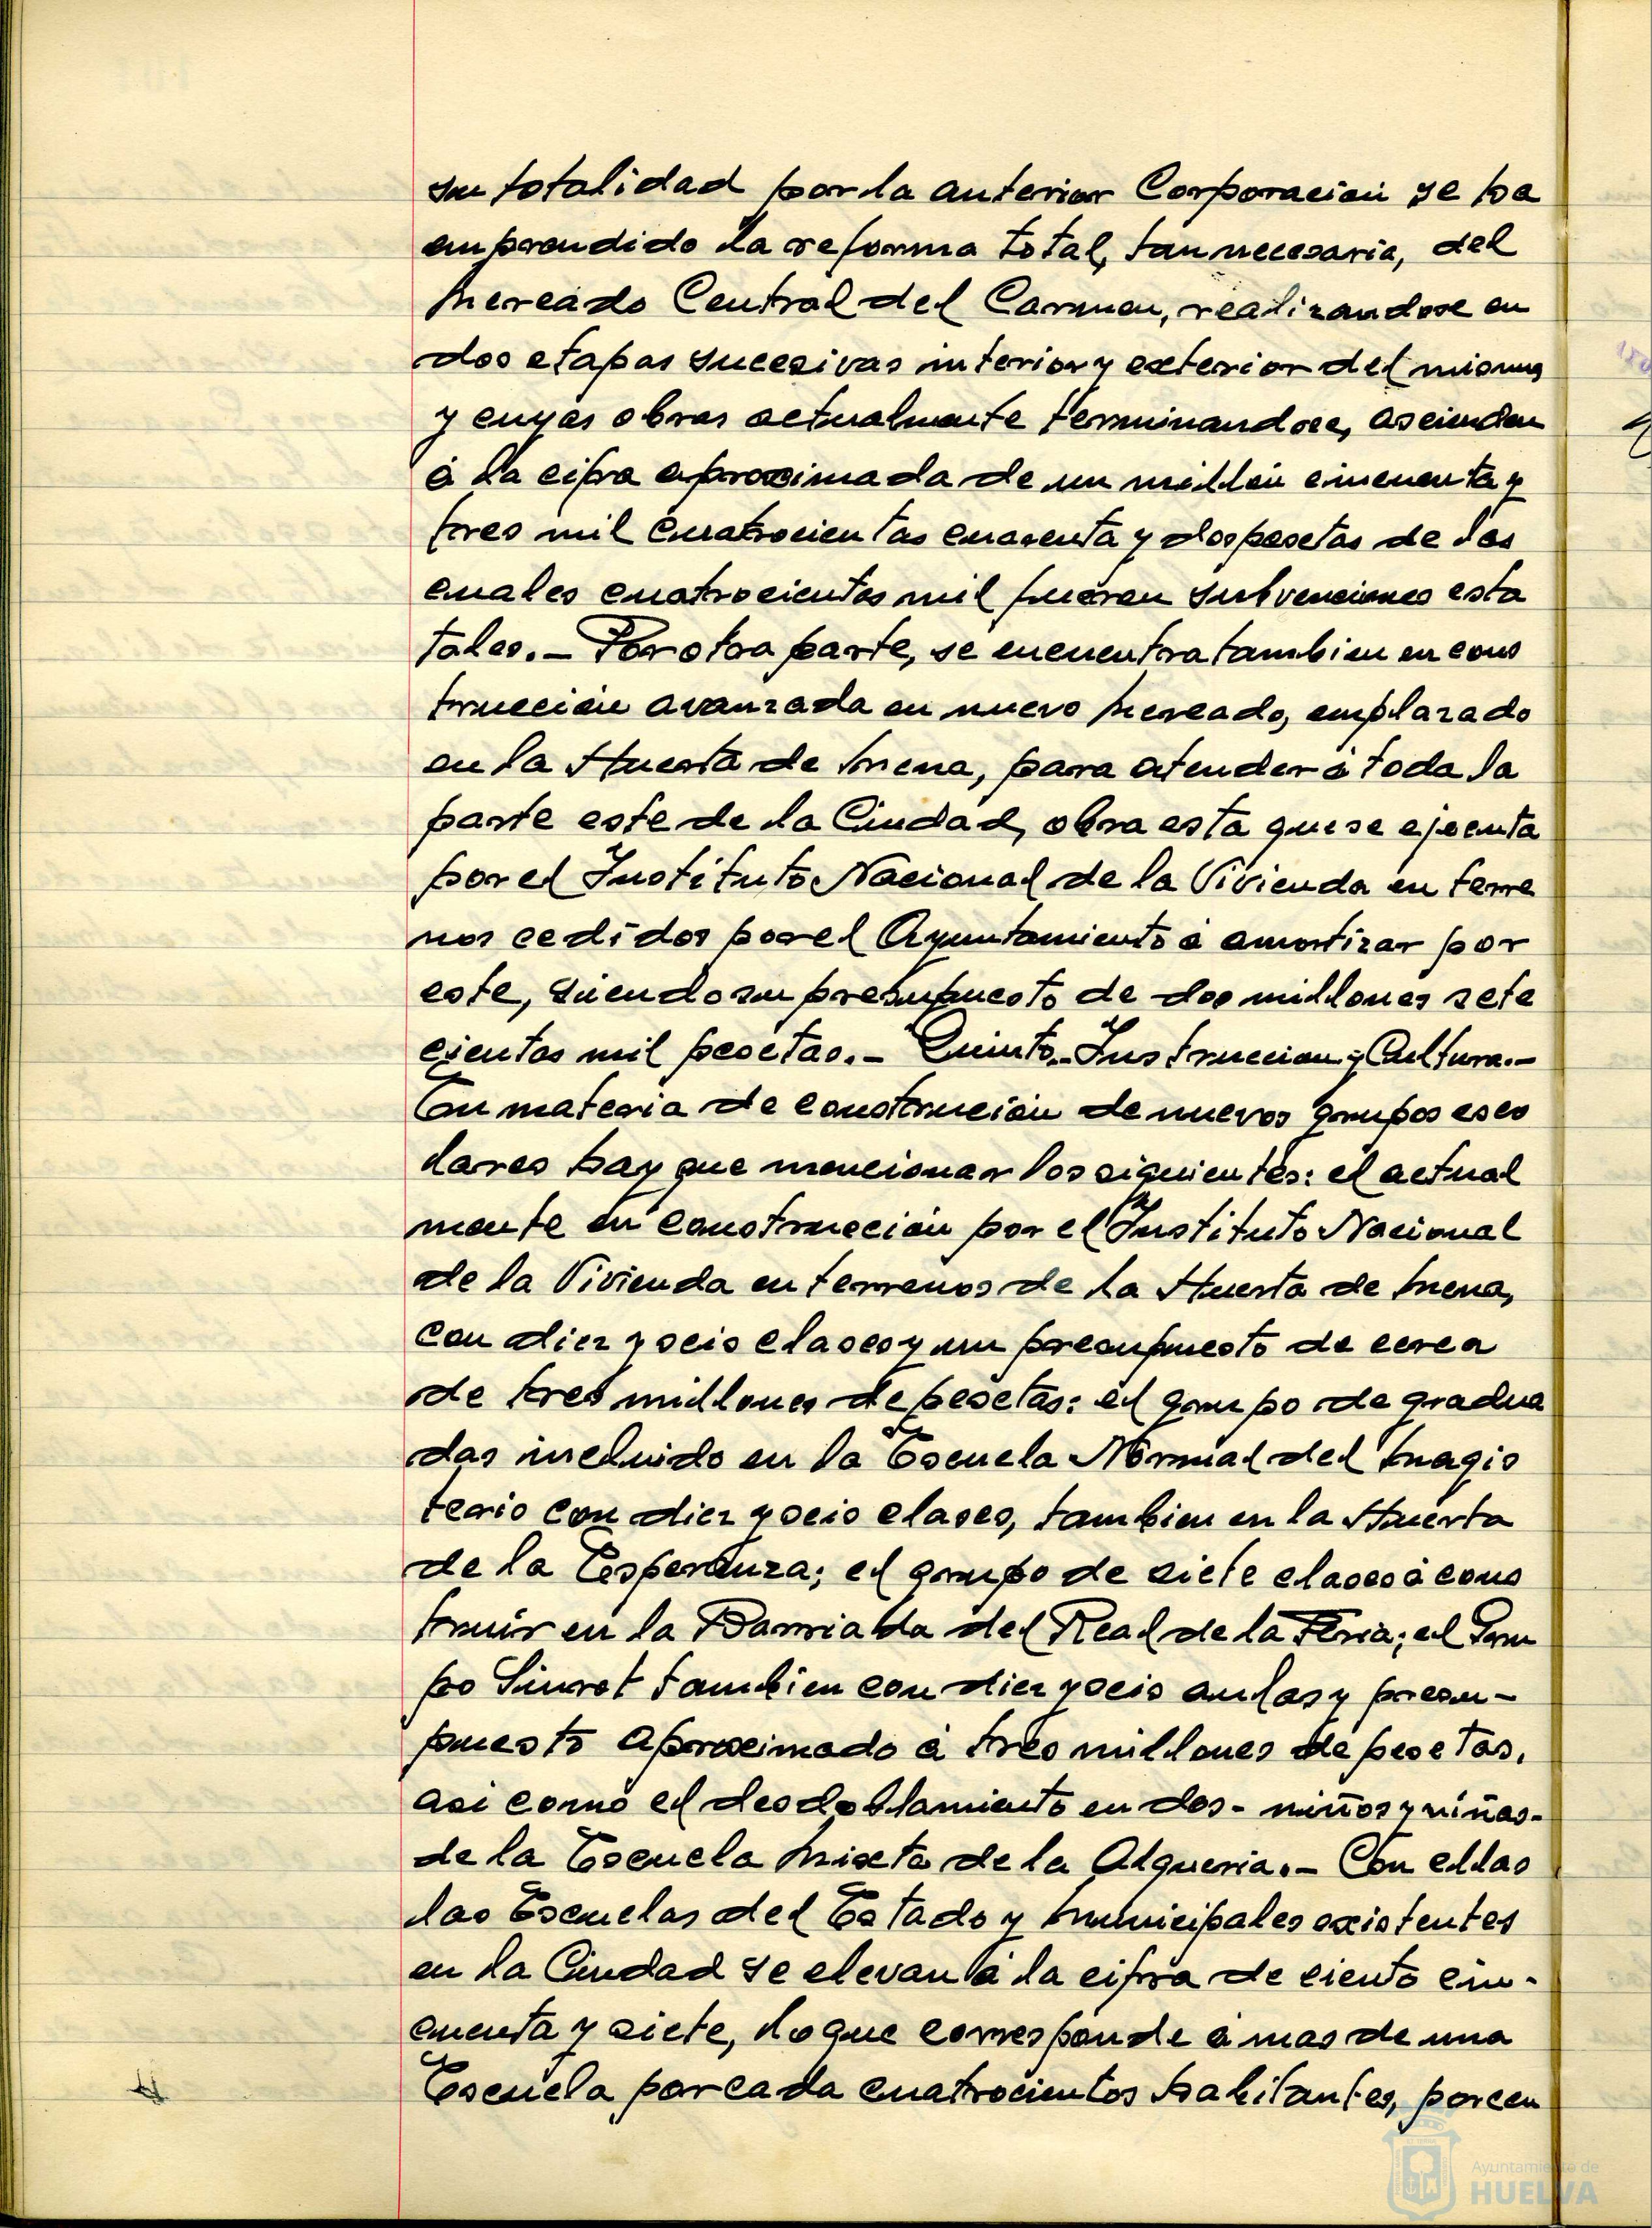 su totalidad por la anterior Corporación se ha
emprendido la reforma total, tan necesaria, del
Mercado Central del Carmen, realizandose en
dos etapas sucesivas interior y exterior del mismo
y cuyas obras actualmente terminandose, ascienden
á la cifra aproximada de un millón cincuenta y
tres mil cuatrocientas cuarenta y dos pesetas de las
cuales cuatrocientas mil fueron subvenciones esta
tales.- Por otra parte, se encuentra tambien en cons
trucción avanzada en nuevo Mercado, emplazado
en la Huerta de Mena, para atender á toda la
parte este de la Ciudad, obra esta que se ejecuta
por el Instituto Nacional de la Vivienda en terre
nos cedidos por el Ayuntamiento á amortizar por
este, siendo su presupuesto de dos millones sete
cientas mil pesetas.- Quinto.- Instruccion y Cultura.-
En materia de construción de nuevos grupos esco
lares hay que mencionar los siguientes: el actual
mente en construcción por el Instituto Nacional
de la Vivienda en terrenos de la Huerta de Mena,
con diez y seis clases y un presupuesto de cerca
de tres millones de pesetas: el grupo de gradua
das incluido en la Escuela Normal del Magis
terio con diez y seis clases, tambien en la Huerta
de la Esperanza; el grupo de siete clases á cons
truir en la Barriada del Real de la Feria; el Gru
po Siurot tambien con diez y seis aulas y presu-
puesto aproximado á tres millones de pesetas,
asi como el desdoblamiento en dos - niños y niñas -
de la Escuela Mixta de la Alqueria.- Con ellas
las Escuelas del Estado y Municipales existentes
en la Ciudad se elevan á la cifra de ciento cin-
cuenta y siete, lo que corresponde á mas de una
Escuela por cada cuatrocientos habitantes, porcen
Ayuntamiento de
HUELVA